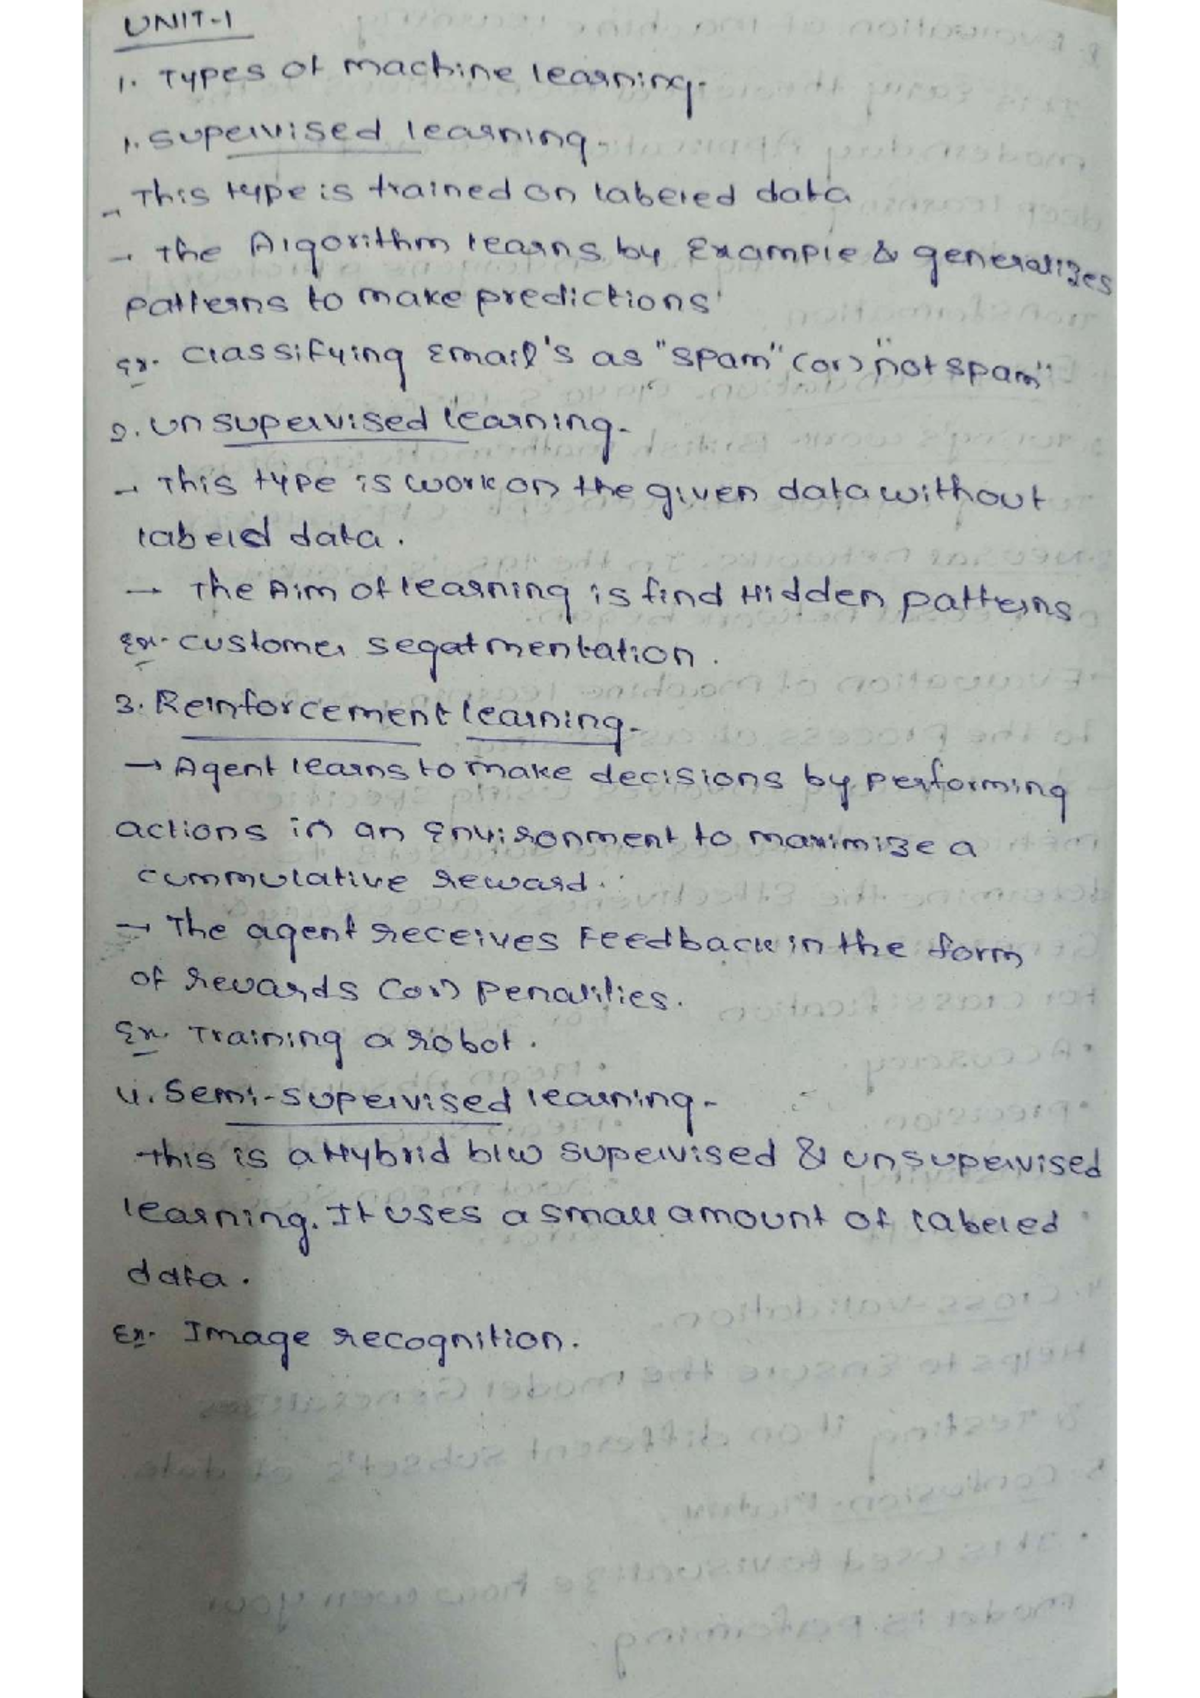 UNIT-1
1. Types of machine learning.
1. supervised learning-
- This type is trained on labeled data
→ the Algorithm learns by Example & generalizes
patterns to make predictions
Ex- classifying Email's as "spam" (or) "not spam"
2. Unsupervised learning-
→ This type is work on the given data without
labeld data.
→ The Aim of learning is find Hidden patterns
Ex- customer segatmentation.
3. Reinforcement learning-
→ Agent learns to make decisions by performing
actions in an Environment to maximize a
cummulative reward.
→ The agent receives Feedback in the form
of rewards (or) penalities.
Ex- Training a robot.
4. Semi-supervised learning-
this is a Hybrid b/w supervised & unsupervised
learning. It uses a small amount of labeled
data.
Ex- Image recognition.